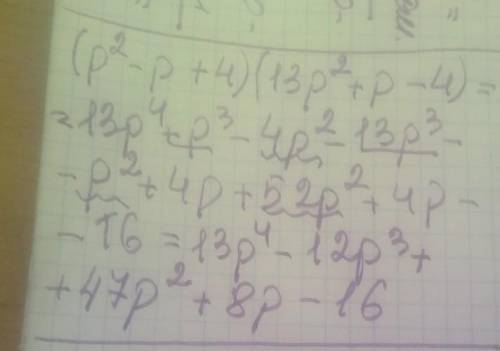 (p² - p + 4)(13p² + p - 4) =
= 13p⁴ + p³ - 4p² - 13p³ -
- p² + 4p + 52p² + 4p -
- 16 = 13p⁴ - 12p³ +
+ 47p² + 8p - 16